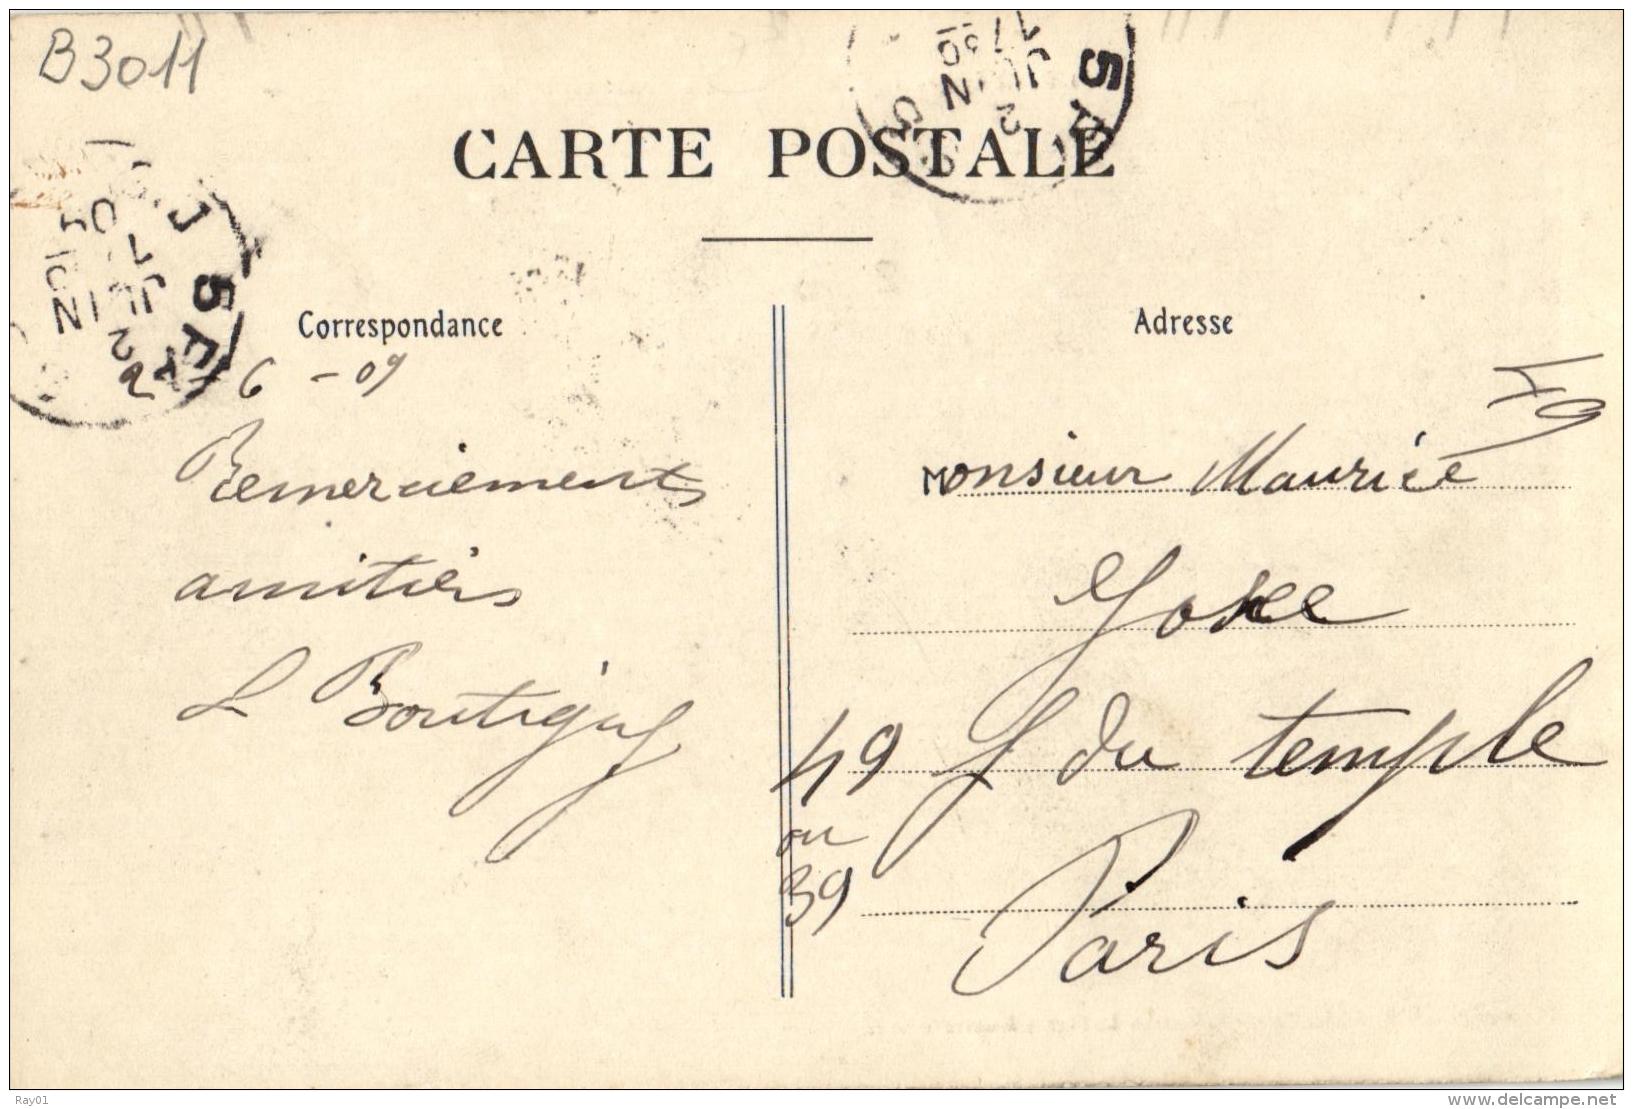 B3011
CARTE POSTALE
Correspondance
Adresse
2-6-09
Remerciements
amitiés
L Boutigny
49
Monsieur Maurice
49 f du temple
ou
39
Paris
5
JUIN
5
JUIN
Ray01
www.delcampe.net